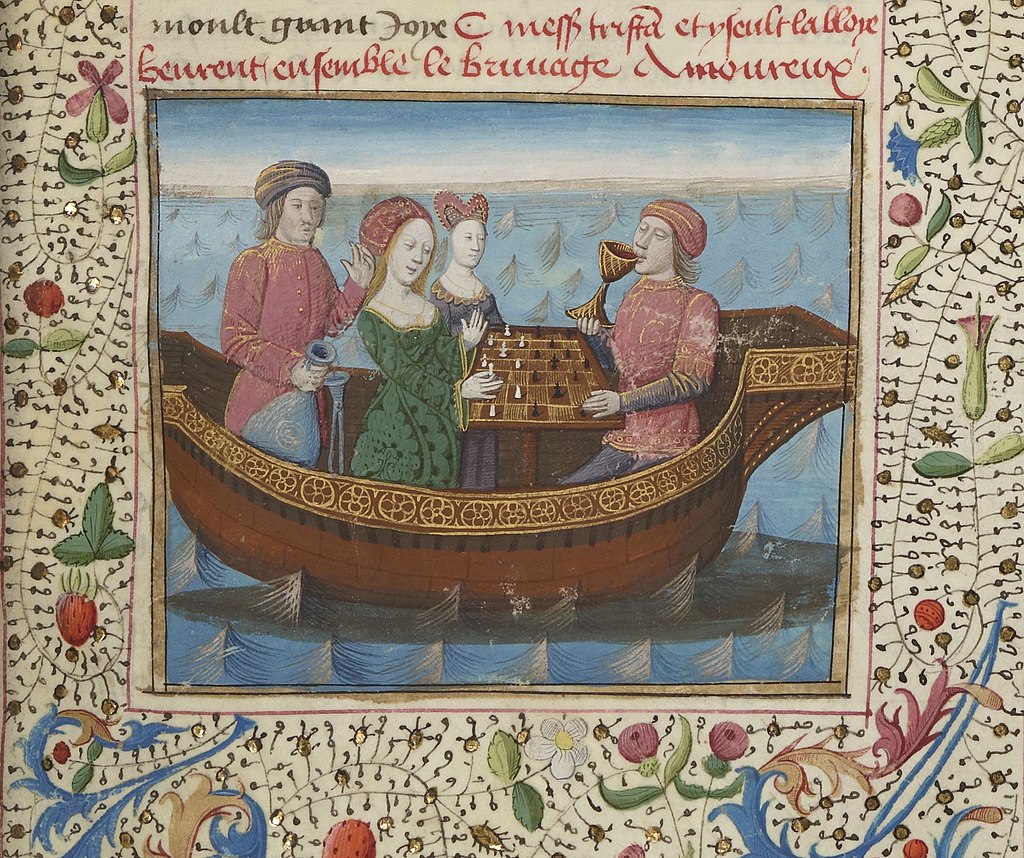 moult grant Joye C mess tristã et yseult la bloye
beurent ensemble le bruuage Amoureux.